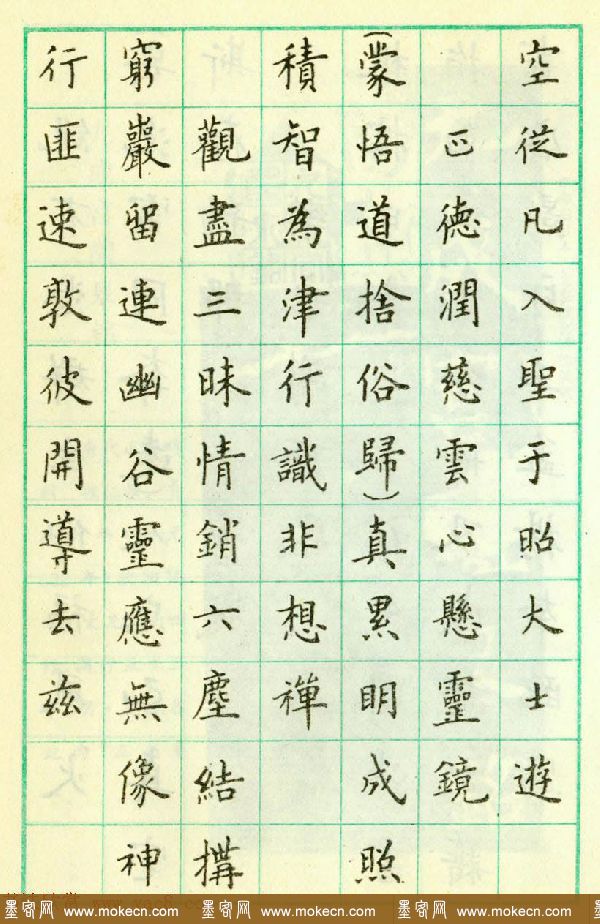 空從凡入聖于昭大士遊
正德潤慈雲心懸靈鏡
(蒙悟道捨俗歸)真累明成照
積智為津行識非想禪
觀盡三昧情銷六塵結構
窮巖留連幽谷靈應無像神
行匪速敦彼開導去茲
墨客网 www.mokecn.com 墨客网 www.mokecn.com 墨客网 www.mokecn.com